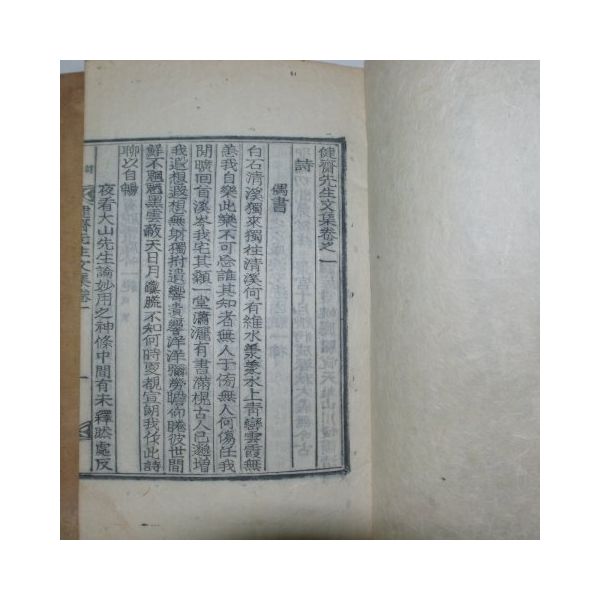 健齋先生文集卷之一
詩
偶書
白石清溪獨來獨往清溪何有維水㵘㵘水上青巒雲霞無
恙我自樂此樂不可忘誰其知者無人于傍無人何傷任我
閒曠回首溪岑我宅其巔一堂瀟灑有書滿榥古人已邈增
我遐想遐想無斁獨拊遺響遺響洋洋彌勞瞻仰瞻彼世間
鮮不魍魎黑雲蔽天日月朦朧不知何時更覩宣朗我作此詩
聊以自暢
夜看大山先生論妙用之神條中間有未釋然處反
健齋先生文集卷一
一